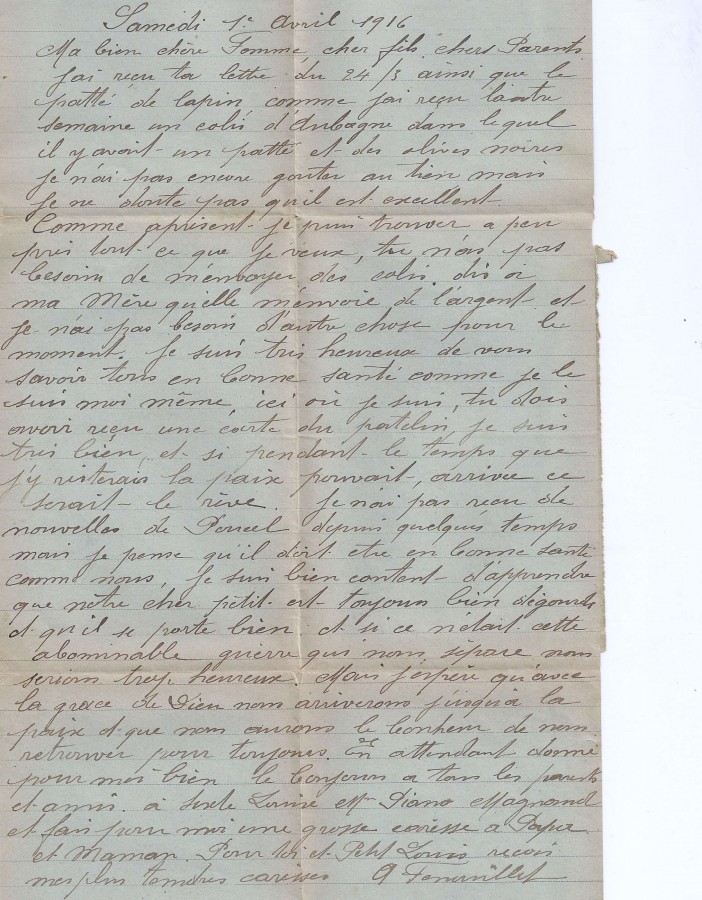 Samedi 1e Avril 1916
Ma bien chère Femme, cher fils, chers Parents
J'ai reçu ta lettre du 24/3 ainsi que le
patté de lapin, comme j'ai reçu l'autre
semaine un colis d'Aubagne dans lequel
il y avait un patté et des olives noires
je n'ai pas encore gouter au tien mais
je ne doute pas qu'il est excellent.
Comme apresent je puis trouver a peu
près tout ce que je veux, tu n'as pas
besoin de m'envoyer des colis. dis a
ma Mère qu'elle m'envoie de l'argent et
je n'ai pas besoin d'autre chose pour le
moment. Je suis très heureux de vous
savoir tous en bonne santé comme je le
suis moi même ici où je suis, tu dois
avoir reçu une carte du patelin, je suis
très bien, et si pendant le temps que
j'y resterais la paix pouvait arrivée ce
serait le rêve. Je n'ai pas reçu de
nouvelles de depuis quelques temps
mais je pense qu'il doit etre en bonne santé
comme nous, Je suis bien content d'apprendre
que nôtre cher petit est toujours bien dégourdi
et qu'il se porte bien et si ce n'etait cette
abominable guerre qui nous sépare nous
serions trop heureux. Mais j'espère qu'avec
la grace de Dieu nous arriverons jusqu'à la
paix et que nous aurons le bonheur de nous
retrouver pour toujours. En attendant donne
pour moi bien le bonjour a tous les parents
et amis. à Louise Mme Magnand
et fais pour moi une grosse caresse a Papa
et Maman. Pour toi et Petit Louis reçois
mes plus tendres caresses